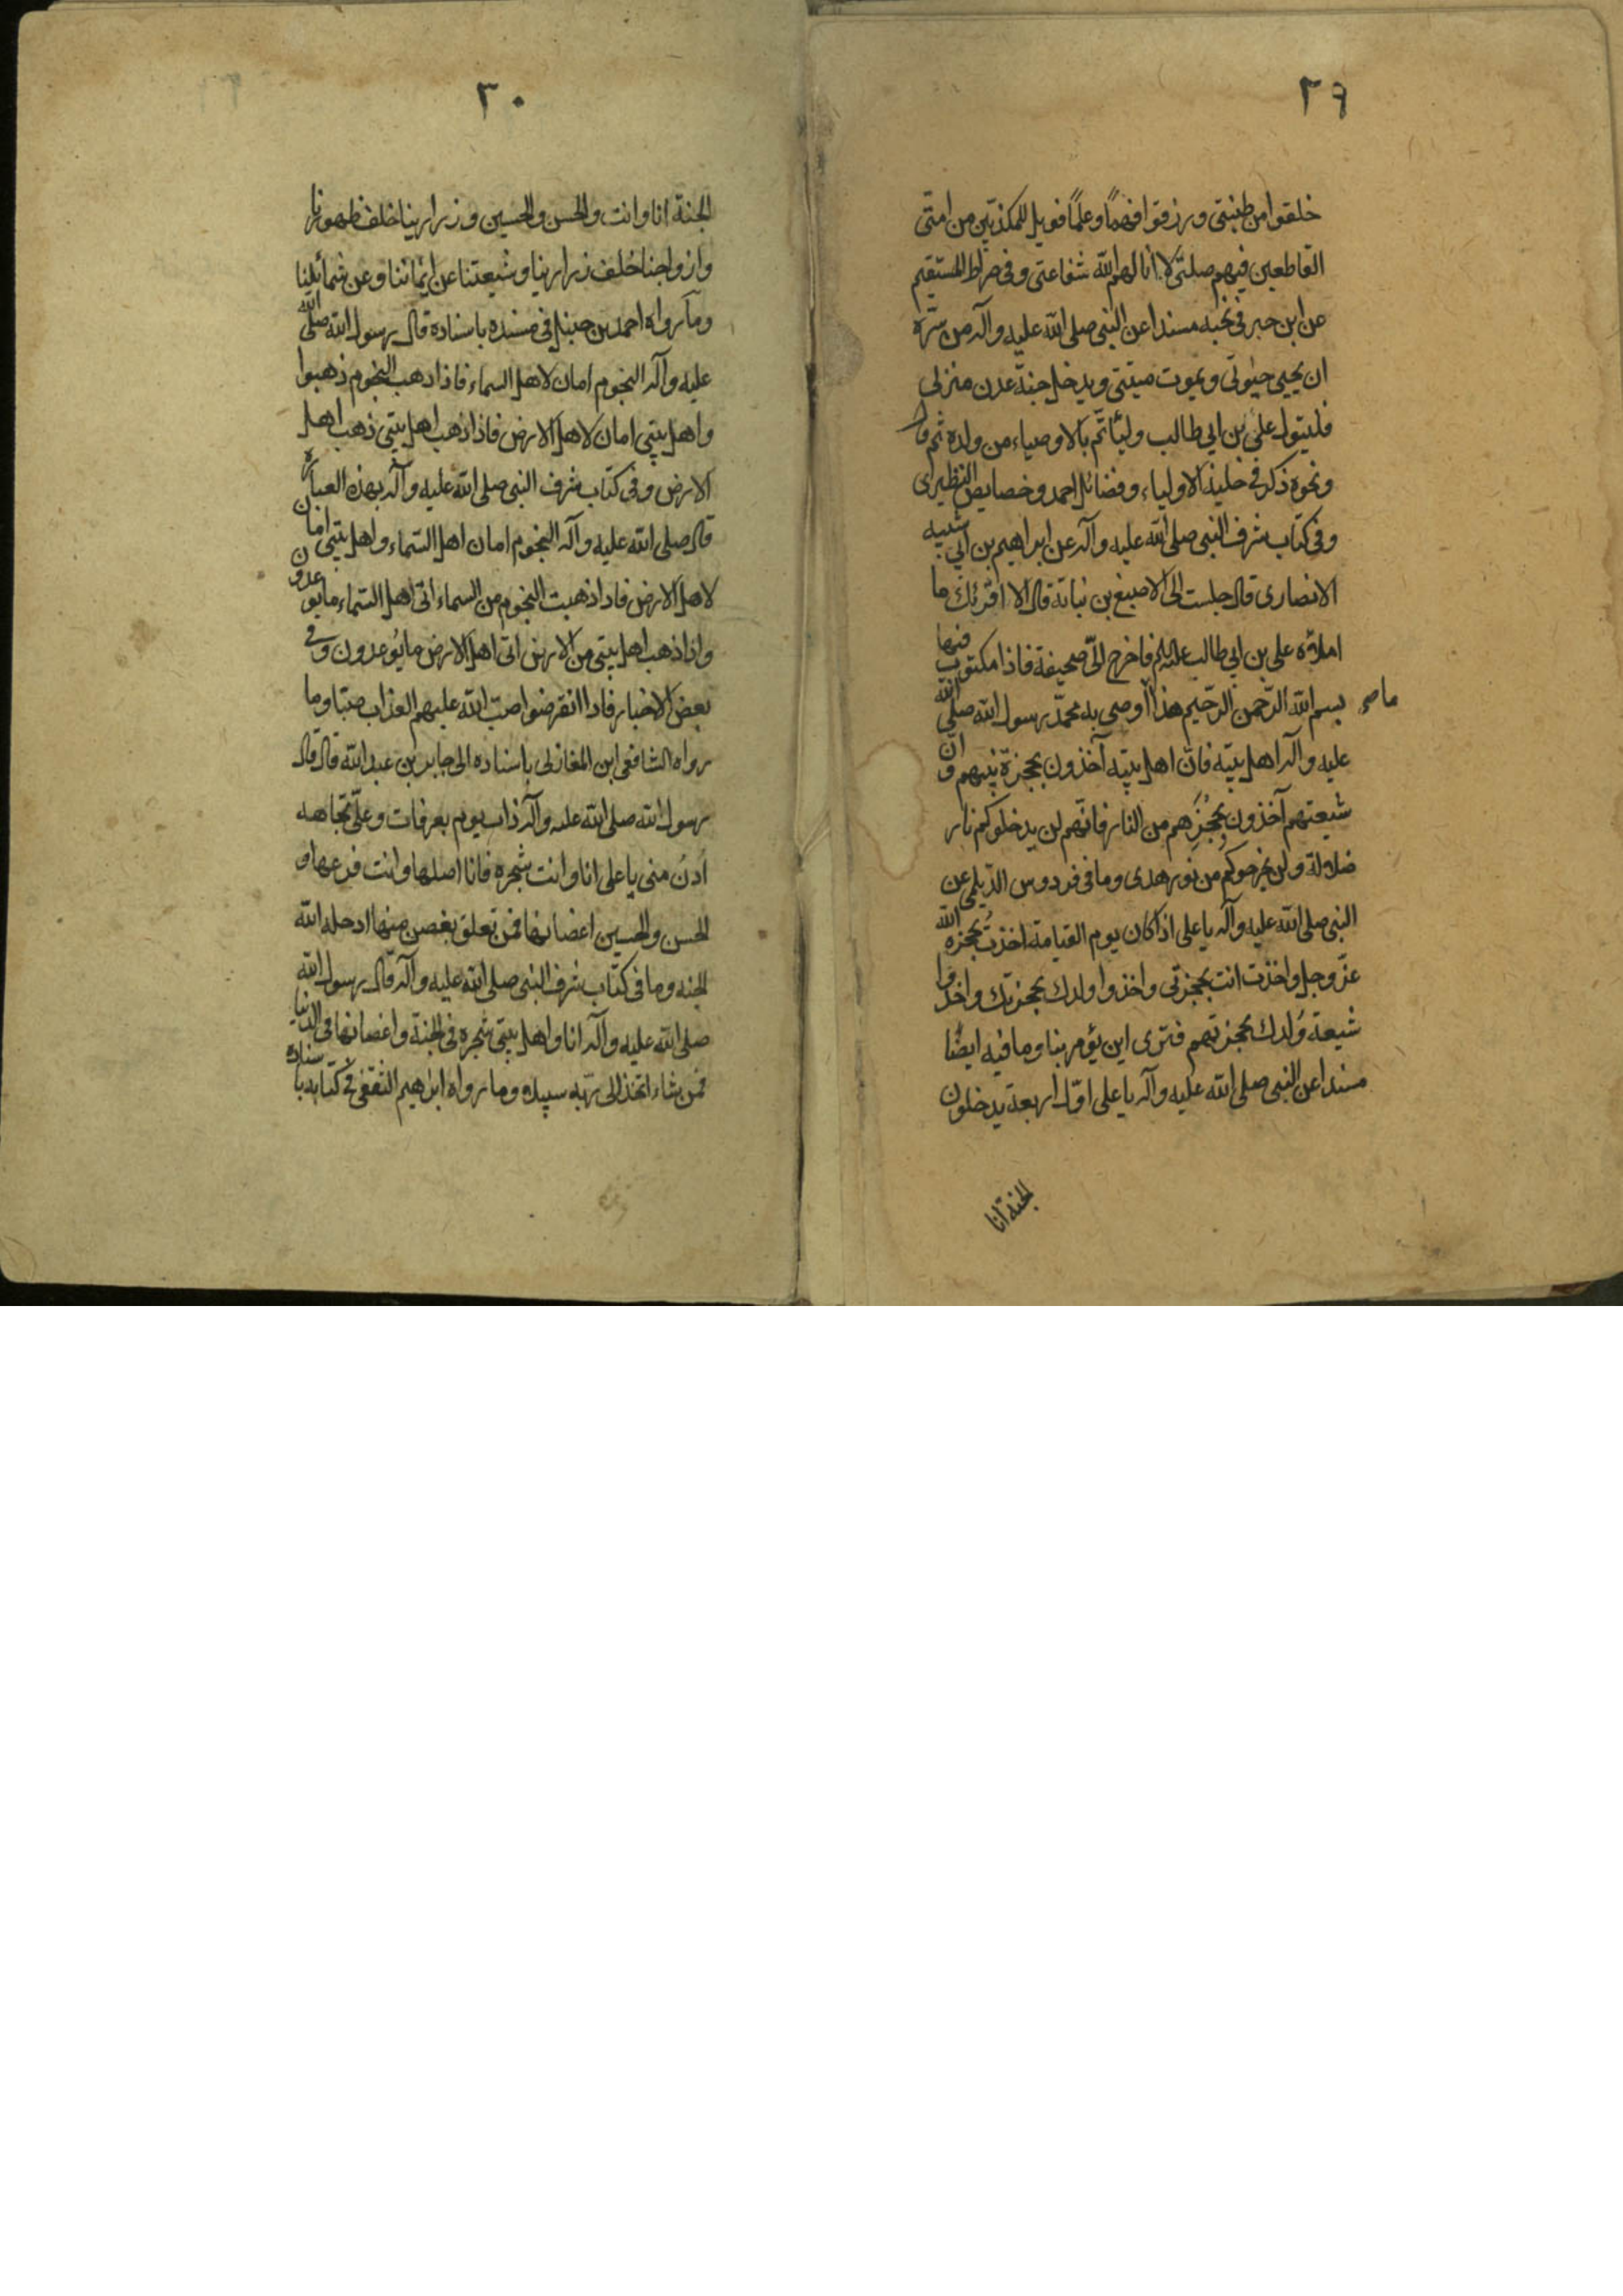 ٢٩
خلقوا من طينتي ورزقوا فهمًا وعلمًا فويل للمكذبين من امتى
القاطعين فيهم صلتى لا انالهم الله شفاعتى وفى صراط المستقيم
عن ابن جبر فى نخبه مسندا عن النبى صلى الله عليه وآله من سره
ان يحيى حيوتى ويموت ميتتى ويدخل جنة عدن منزلى
فليتول على بن ابى طالب وليأتم بالاوصياء من ولده ثم قال
ونحوه ذكر فى حلية الاولياء وفضائل احمد وخصايص النظيرى
وفى كتاب شرف النبى صلى الله عليه وآله عن ابراهيم بن ابى شيبه
الانصارى قال جلست الى الاصبغ بن نباتة قال الا اقرئك ما
املاه على بن ابى طالب عليه السلم فاخرج الىّ صحيفة فاذا مكتوب فيها
ما صح بسم الله الرّحمن الرّحيم هذا اوصى به محمّد رسول الله صلى الله
عليه وآله اهل بيته فانّ اهل بيته آخذون بحجزة نبيهم وانّ
شيعتهم آخذون بحُجَزِهم من النار فانّهم لن يدخلوكم نار
ضلالة ولن يخرجوكم من نور هدى وما فى فردوس الديلمى عن
النبى صلى الله عليه وآله يا على اذا كان يوم القيامة اخذتُ بحجزه الله
عزّ وجل واخذت انت بحجزتى واخذوا ولدك بحجزتك واخذوا
شيعة وُلدك بحجزتهم فترى اين يؤمر بنا وما فيه ايضًا
مسندا عن النبى صلى الله عليه وآله يا على اوّل اربعة يدخلون
الجنة انا
٣٠
الجنة انا وانت والحسن والحسين وذرارينا خلف ظهورنا
وازواجنا خلف ذرارينا وشيعتنا عن ايماننا وعن شمائلنا
وما رواه احمد بن حنبل فى مسنده باسناده قال رسول الله صلى الله
عليه وآله النجوم امان لاهل السماء فاذا ذهب النجوم ذهبوا
واهل بيتى امان لاهل الارض فاذا ذهب اهل بيتى ذهب اهل
الارض وفى كتاب شرف النبى صلى الله عليه وآله بهذه العبارة
قال صلى الله عليه وآله النجوم امان اهل السّماء واهل بيتى امان
لاهل الارض فاذا ذهبت النجوم من السماء اتى اهل السّماء ما يوعدون
واذا ذهب اهل بيتى من الارض اتى اهل الارض ما يوعدون وفى
بعض الاخبار فاذا انقرضوا صبّ الله عليهم العذاب صبّا وما
رواه الشافعى ابن المغازلى باسناده الى جابر بن عبد الله قال قال
رسول الله صلى الله عليه وآله ذات يوم بعرفات وعلىّ تجاهه
اُدنُ منى يا على انا وانت شجره فانا اصلها وانت فرعها و
الحسن والحسين اغصانها فمن تعلق بغصن منها ادخله الله
الجنه وما فى كتاب شرف النبى صلى الله عليه وآله قال رسول الله
صلى الله عليه وآله انا واهل بيتى شجره فى الجنة واغصانها فى الدنيا
فمن شاء اتخذ الى ربّه سبيلا وما رواه ابرهيم الثقفى فى كتابه باسناده